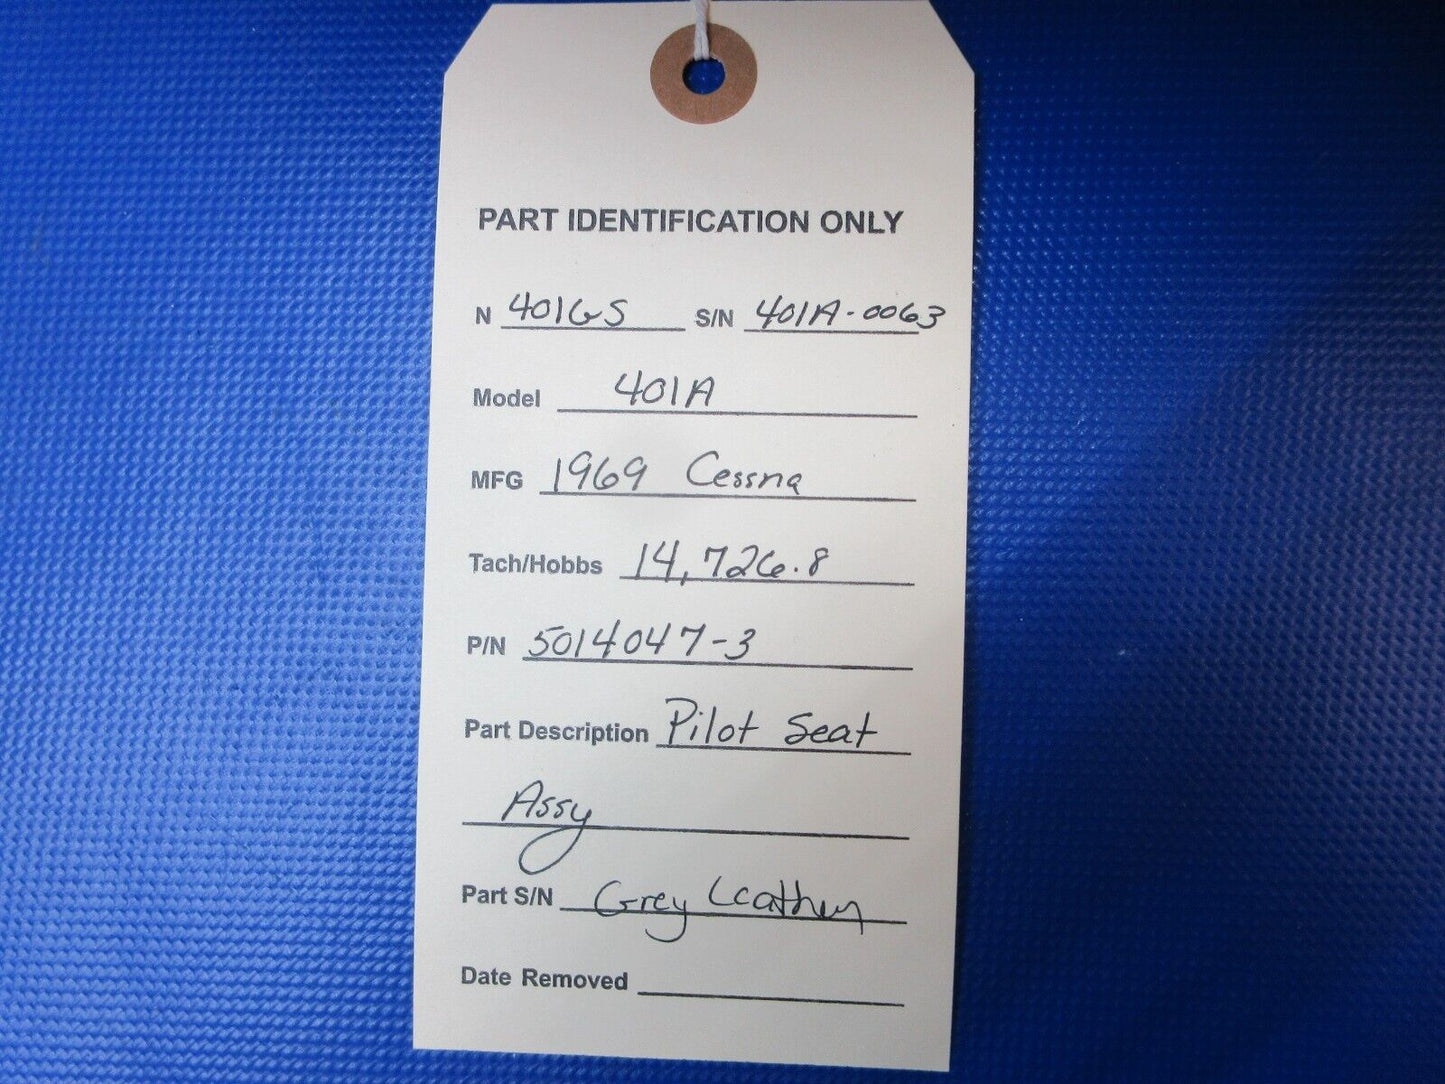 PART IDENTIFICATION ONLY
N 401GS S/N 401A-0063
Model 401A
MFG 1969 Cessna
Tach/Hobbs 14,726.8
P/N 5014047-3
Part Description Pilot Seat
Assy
Part S/N Grey Leather
Date Removed